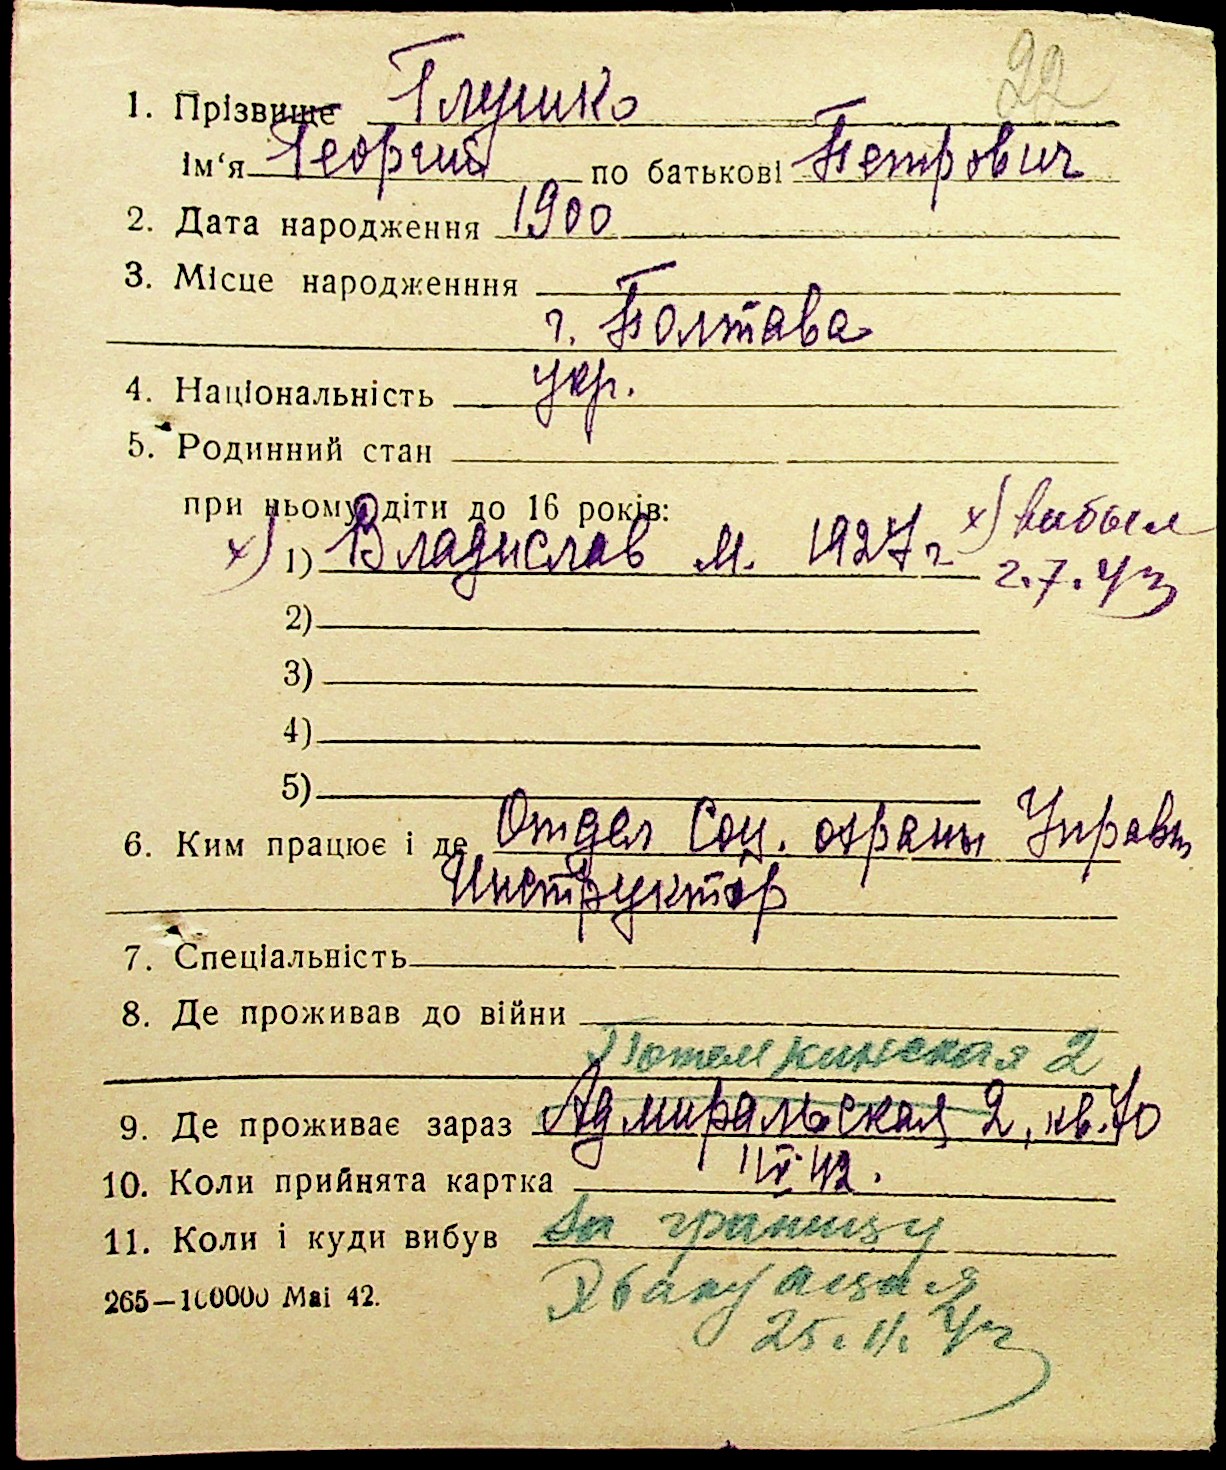 22
1. Прізвище Глушко
ім‘я Георгий по батькові Петрович
2. Дата народження 1900
3. Місце народженння
г. Полтава
4. Національність укр.
5. Родинний стан
при ньому діти до 16 років:
х) 1) Владислав м. 1927 г х) выбыл
2.7.43
2)
3)
4)
5)
6. Ким працює і де Отдел Соц. охраны Управы
Инструктор
7. Спеціальність
8. Де проживав до війни
Потемкинская 2
9. Де проживає зараз Адмиральская 2, кв. 70
10. Коли прийнята картка
11. Коли і куди вибув За границу
Эвакуация
25.11.43
265—100000 Mai 42.